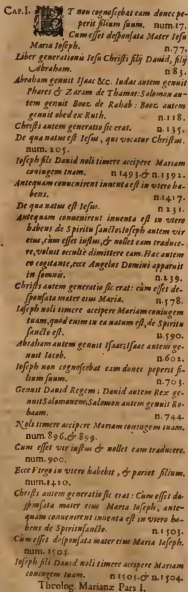 CAP. I. ET non cognoscebat eam donec pe-
perit filium suum. num.17.
Cum esset desponsata Mater Iesu
Maria Ioseph. n.77.
Liber generationis Iesu Christi filij Dauid, filij
Abraham. n 83.
Abraham genuit Isaac &c. Iudas autem genuit
Phares & Zaram de Thamar: Salomon au-
tem genuit Booz de Rahab: Booz autem
genuit obed ex Ruth. n.118.
Christi autem generatio sic erat. n. 135.
De qua natus est Iesus, qui vocatur Christus.
num. 205.
Ioseph fili Dauid noli timere accipere Mariam
coniugem tuam. n 1493. & n.1392.
Antequam conuenirent inuenta est in vtero ha-
bens. n.1417.
De qua natus est Iesus. n 231.
Antequam conuenirent inuenta est in vtero
habens de Spiritu sancto: Ioseph autem vir
eius, cum esset iustus, & nollet eam traduce-
re, voluit occultè dimittere eam. Hæc autem
eo cogitante, ecce Angelus Domini apparuit
in somnis. n.139.
Christi autem generatio sic erat: cùm esset de-
sponsata mater eius Maria. n.578.
Ioseph noli timere accipere Mariam coniugem
tuam, quod enim in ea natum est, de Spiritu
sancto est. n.590.
Abraham autem genuit Isaac; Isaac autem ge-
nuit Iacob. n.602.
Ioseph non cognoscebat eam donec peperis fi-
lium suum. n.703.
Genuit Dauid Regem; Dauid autem Rex ge-
nuit Salomonem; Salomon autem genuit Ro-
boam. n.744.
Noli timere accipere Mariam coniugem tuam.
num. 896. & 899.
Cum esset vir iustus & nollet eam traducere.
num. 900.
Ecce Virgo in vtero habebit, & pariet filium.
num.1410.
Christi autem generatio sic erat: Cum esset de-
sponsata mater eius Maria Ioseph, ante-
quam conuenirent inuenta est in vtero ha-
bens de Spiritu sancto. n.1503.
Cùm esset desponsata mater eius Maria Ioseph.
num. 1503.
Ioseph fili Dauid noli timere accipere Mariam
coniugem tuam. n 1501. & n.1504.
Theolog. Marianæ Pars I.